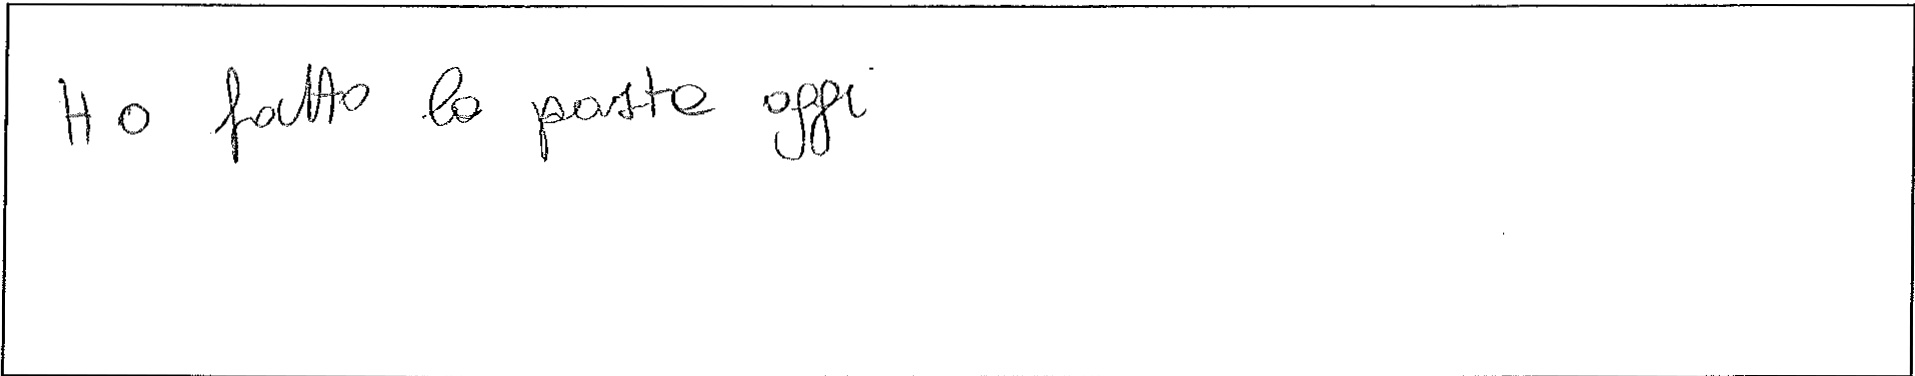 Ho fatto la pasta oggi